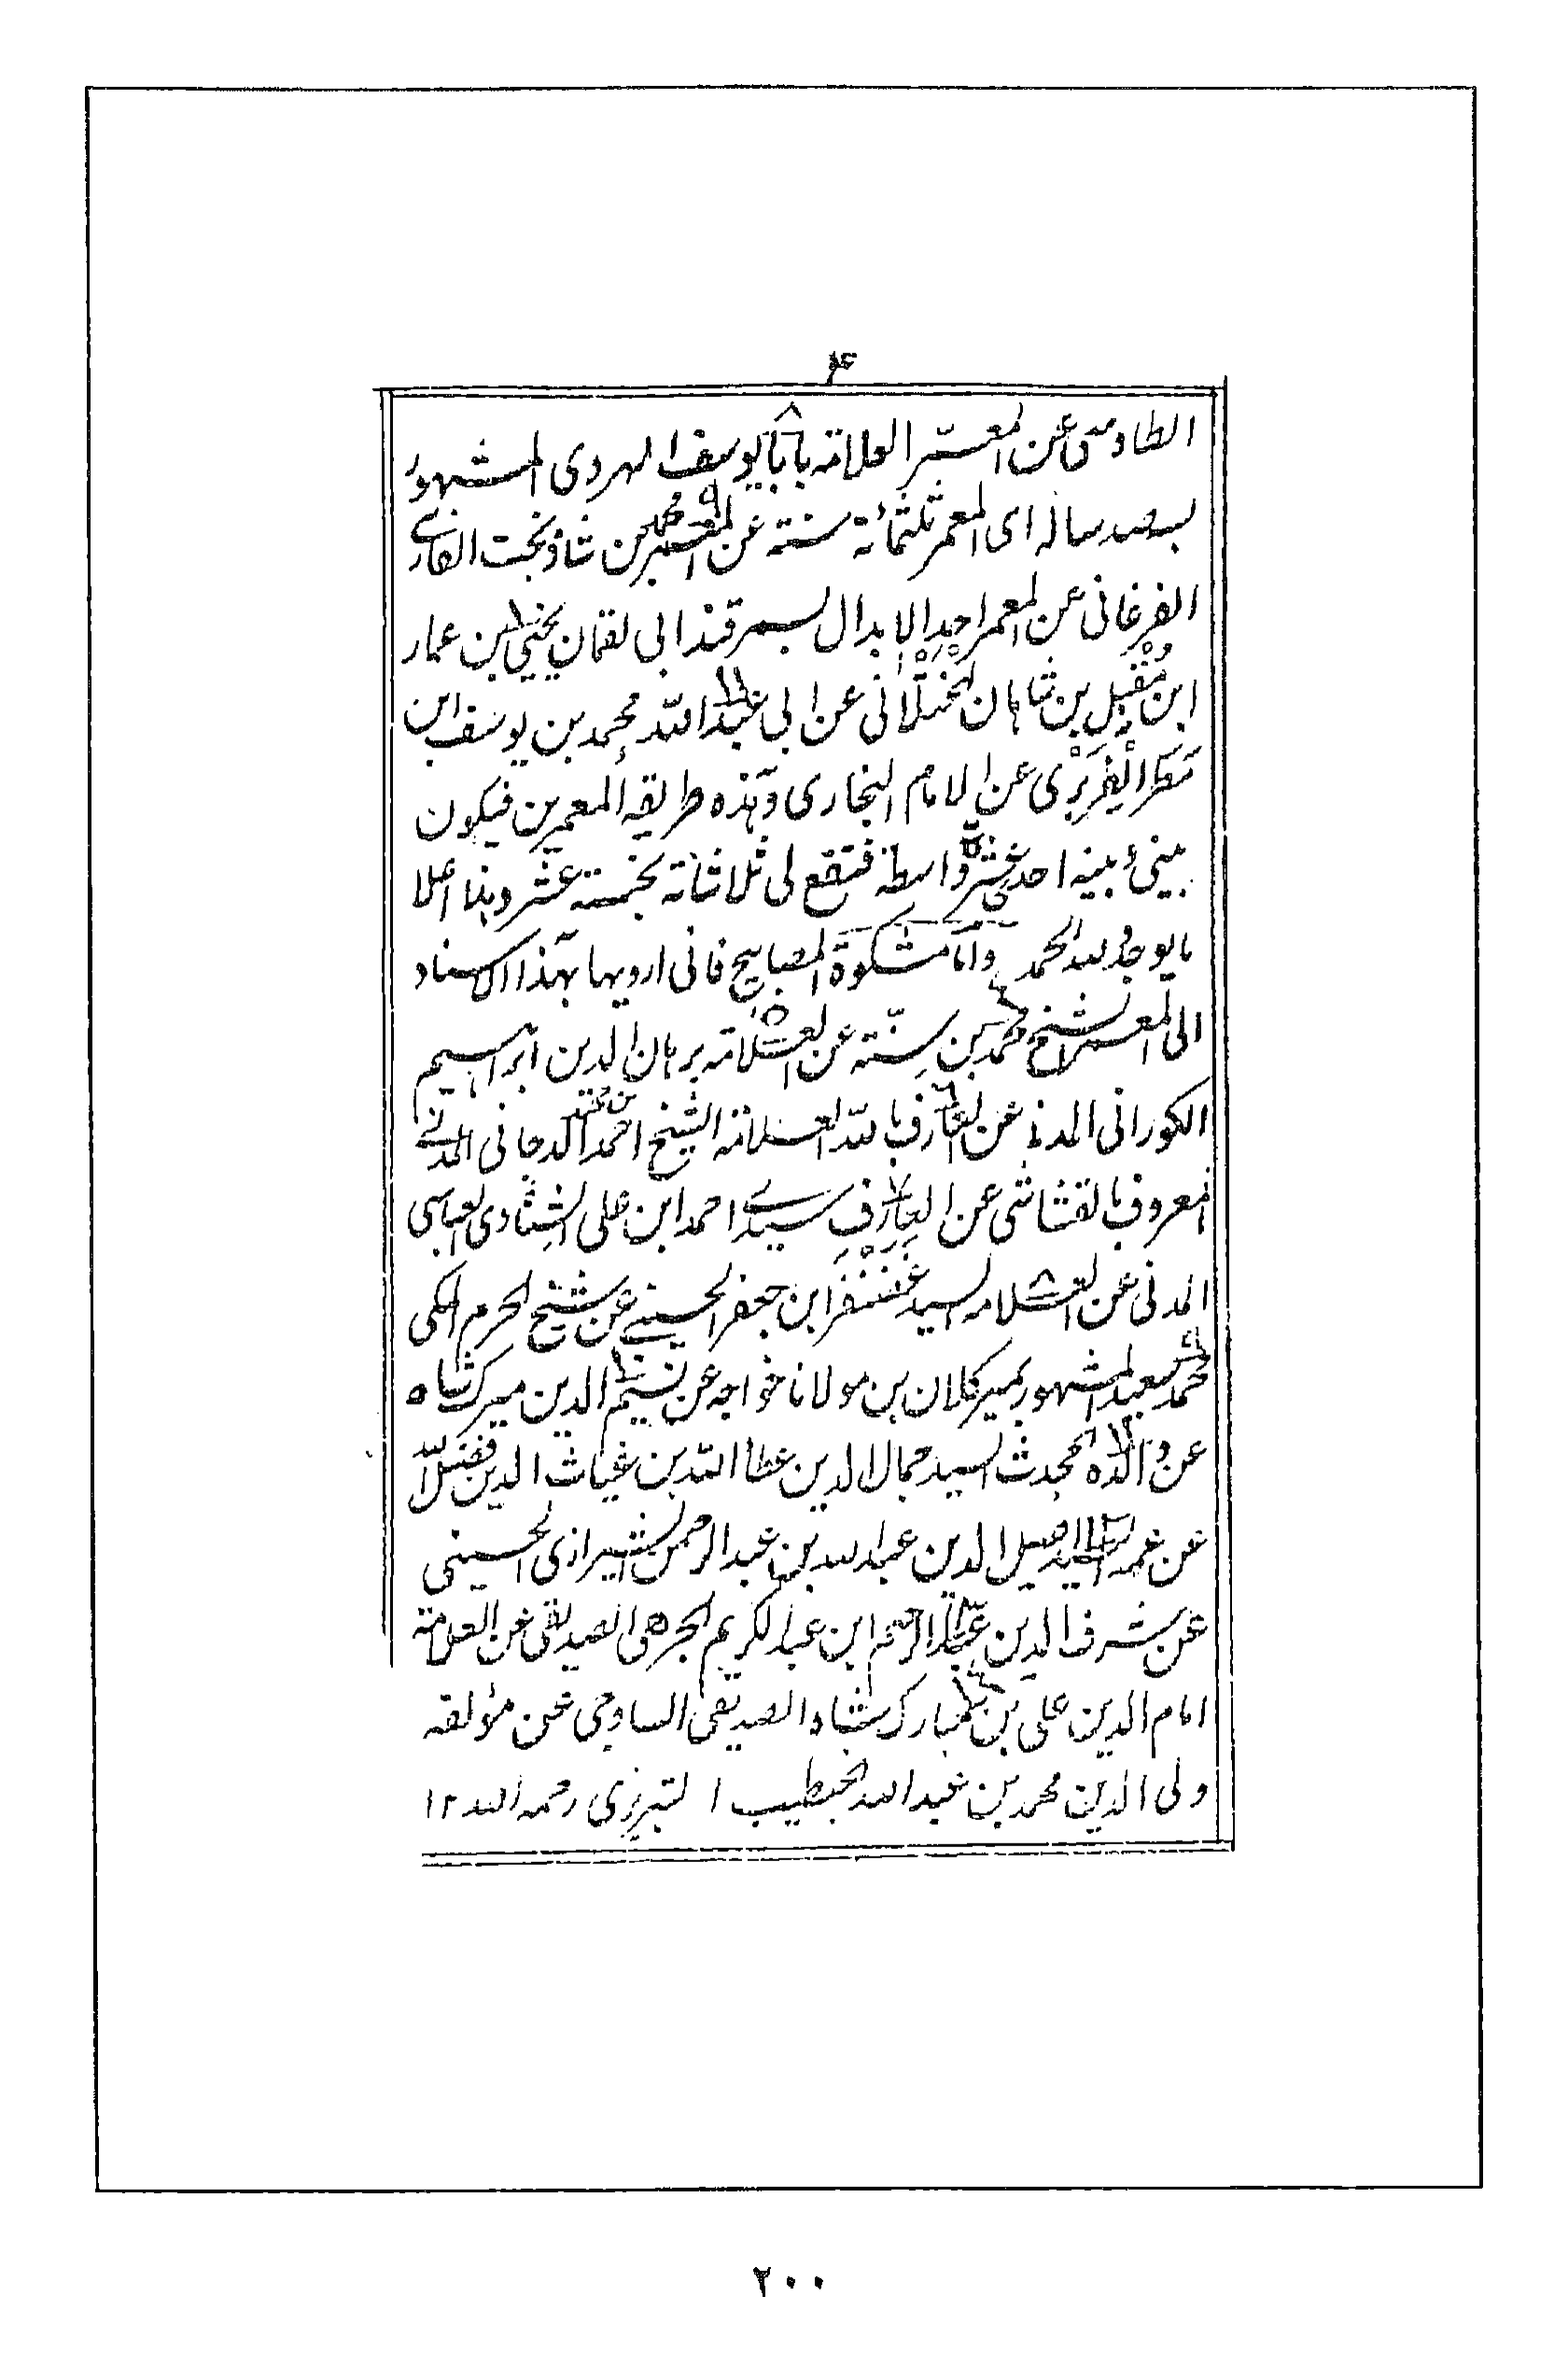 ۴
الطاوسی عن المعمر العلامة بابا یوسف الهروی المشهور ۸
بسه صد ساله ای المعمر ثلثمائة سنة عن المعمر محمد بن شاذ بخت الفارسی ۹
الفرغانی عن المعمر احد الابدال بسمرقند ابی لقمان یحیی بن عمار ۱۰
ابن مُقْبِل بن شاہان الختلانی عن ابی عبد اللہ محمد بن یوسف ابن ۱۱
مَطَر الْفِرَبْرِی عن الامام البخاری وہذہ طریقہ المعمرین فیکون
بینی وبینہ احد عشر واسطۃ فتقع لی ثلاثیاتہ بخمسۃ عشر وہذا اعلا
ما یوجد وللہ الحمد وامّا مشکوۃ المصابیح فانی ارویہا بہذا الاسناد
الی المعمر الشیخ محمد بن سِنّۃ عن العلامۃ برہان الدین ابراہیم ۴ ۵
الکورانی المدنی عن العارف باللہ العلامۃ الشیخ احمد بن محمد الدجانی المدنی ۶
المعروف بالقشاشی عن العارف سیدی احمد ابن علی الشِنّاوی العباسی ۷
المدنی عن العلامہ السید غضنفر ابن جعفر الحسینی عن شیخ الحرم المکی ۸
محمد سعید المشہور بمیر کلان بن مولانا خواجہ عن نسیم الدین میرک شاہ ۹ ۱۰
عن والدہ المحدث السید جمال الدین عطا اللہ بن غیاث الدین فضل اللہ ۱۱
عن عمہ السید اصیل الدین عبد اللہ بن عبد الرحمن الشیرازی الحسینی ۱۲
عن شرف الدین عبد الرحیم ابن عبد الکریم الجرہی الصدیقی عن العلامۃ ۱۳
امام الدین علی بن مبارک شاہ الصدیقی الساوجی عن مؤلفہ ۱۴
ولی الدین محمد بن عبد اللہ الخطیب التبریزی رحمہ اللہ ۱۲
٢٠٠